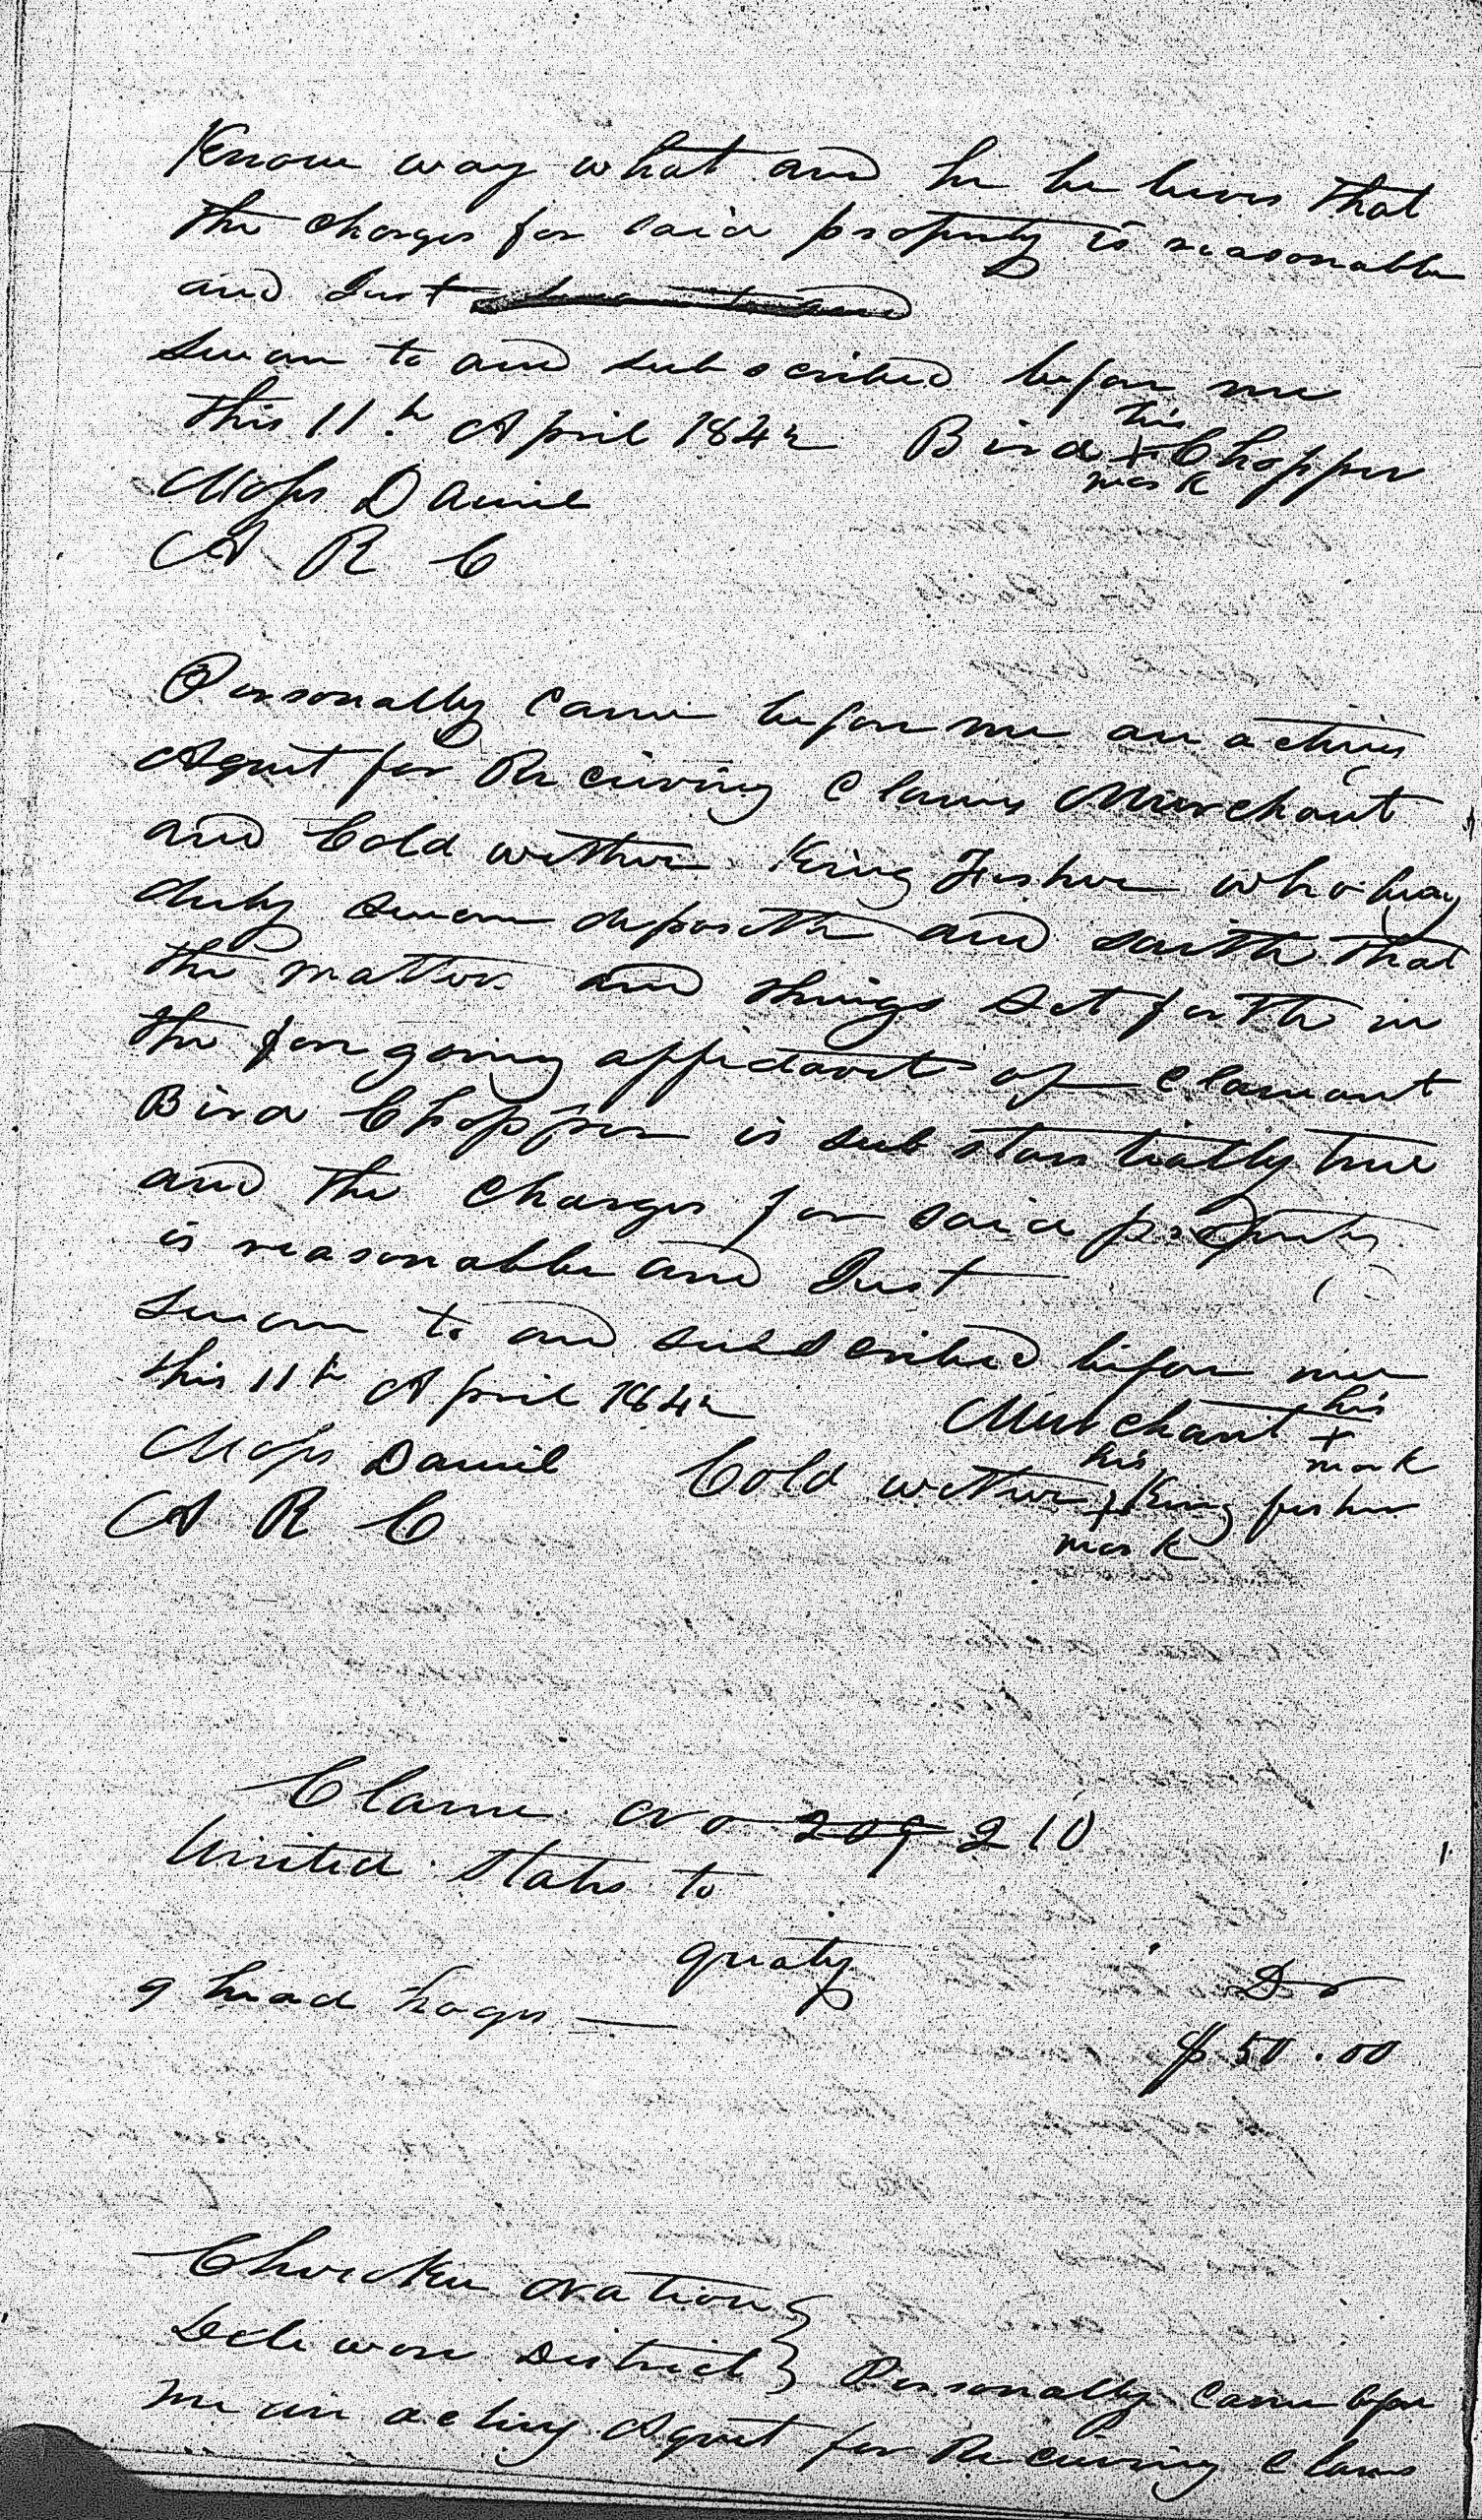 Know way what and he be lieves that
the charges for said property is reasonable
and Just
Sworn to and subscribed before me
this 11.th April 1842 Bird his + mark Chopper
Moses Daniel
A R C
Personally came before me an acting
Agent for Receiving Claims Murchant
and Cold wether King Fisher who being
duly sworn deposeth and saith that
the matters and things set forth in
the fore going affidavit of clamant
Bird Chopper is substantially true
and the charges for said property
is reasonable and Just
Sworn to and subscribed before me
this 11th April 1842 Murchant his + mark
Moses Daniel Cold wether his + mark King fisher
A R C
Claim No 209 210
United States to
qualy
9 head hogs — Dr
$ 50.00
Cherokee Nation }
Delaware District } Personally came before
me an acting Agent for Receiving Claims